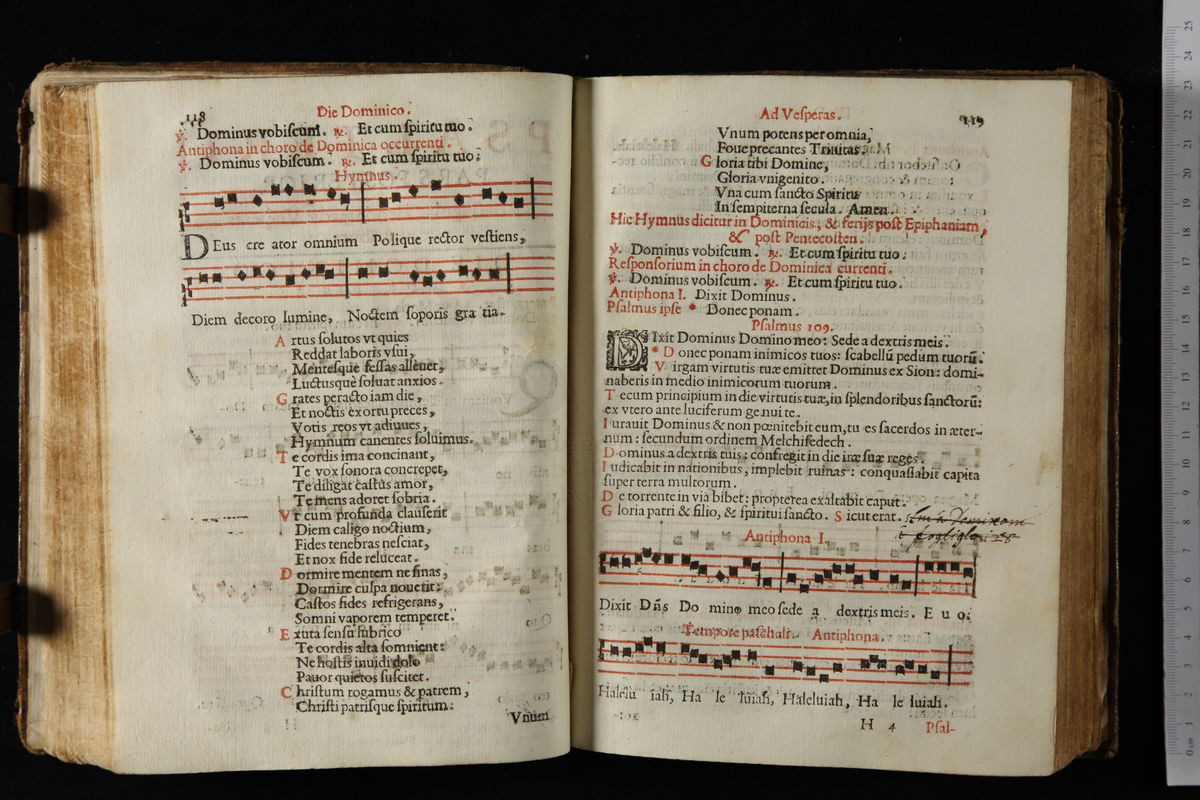 118
Die Dominico.
℣. Dominus vobiſcum. ℟. Et cum ſpiritu tuo.
Antiphona in choro de Dominica occurrenti.
℣. Dominus vobiſcum. ℟. Et cum ſpiritu tuo:
Hymnus.
DEus cre ator omnium Polique rector veſtiens,
Diem decoro lumine, Noctem ſoporis gra tia.
Artus ſolutos vt quies
Reddat laboris vſui,
Menteſque feſſas alleuet,
Luctuſquè ſoluat anxios.
Grates peracto iam die,
Et noctis exortu preces,
Votis reos vt adiuues,
Hymnum canentes ſoluimus.
Te cordis ima concinant,
Te vox ſonora concrepet,
Te diligat caſtus amor,
Te mens adoret ſobria.
Vt cum profunda clauſerit
Diem caligo noctium,
Fides tenebras neſciat,
Et nox fide reluceat.
Dormire mentem ne ſinas,
Dormire culpa nouerit:
Caſtos fides refrigerans,
Somni vaporem temperet.
Exuta ſenſu lubrico
Te cordis alta ſomnient:
Ne hoſtis inuidi dolo
Pauor quietos ſuſcitet.
Chriſtum rogamus & patrem,
Chriſti patriſque ſpiritum:
Vnum
Ad Veſperas.
119
Vnum potens per omnia,
Foue precantes Trinitas.
Gloria tibi Domine,
Gloria vnigenito.
Vna cum ſancto Spiritu
In ſempiterna ſecula. Amen.
Hic Hymnus dicitur in Dominicis, & ferijs poſt Epiphaniam,
& poſt Pentecoſten.
℣. Dominus vobiſcum. ℟. Et cum ſpiritu tuo:
Reſponſorium in choro de Dominica currenti.
℣. Dominus vobiſcum. ℟. Et cum ſpiritu tuo.
Antiphona I. Dixit Dominus.
Pſalmus ipſe * Donec ponam.
Pſalmus 109.
DIxit Dominus Domino meo: Sede a dextris meis.
* Donec ponam inimicos tuos: ſcabellũ pedum tuorũ.
Virgam virtutis tuæ emittet Dominus ex Sion: domi-
naberis in medio inimicorum tuorum.
Tecum principium in die virtutis tuæ, in ſplendoribus ſanctorũ:
ex vtero ante luciferum genui te.
Iurauit Dominus & non pœnitebit eum, tu es ſacerdos in æter-
num: ſecundum ordinem Melchiſedech.
Dominus a dextris tuis: confregit in die iræ ſuæ reges.
Iudicabit in nationibus, implebit ruinas: conquaſſabit capita
ſuper terra multorum.
De torrente in via bibet: propterea exaltabit caput.
Gloria patri & filio, & ſpiritui ſancto. Sicut erat.
Antiphona I.
Dixit Dñs Do mino meo ſede a dextris meis. E u o.
Tempore paſchali. Antiphona.
Halelu iah, Ha le luiah, Haleluiah, Ha le luiah.
H 4
Pſal-